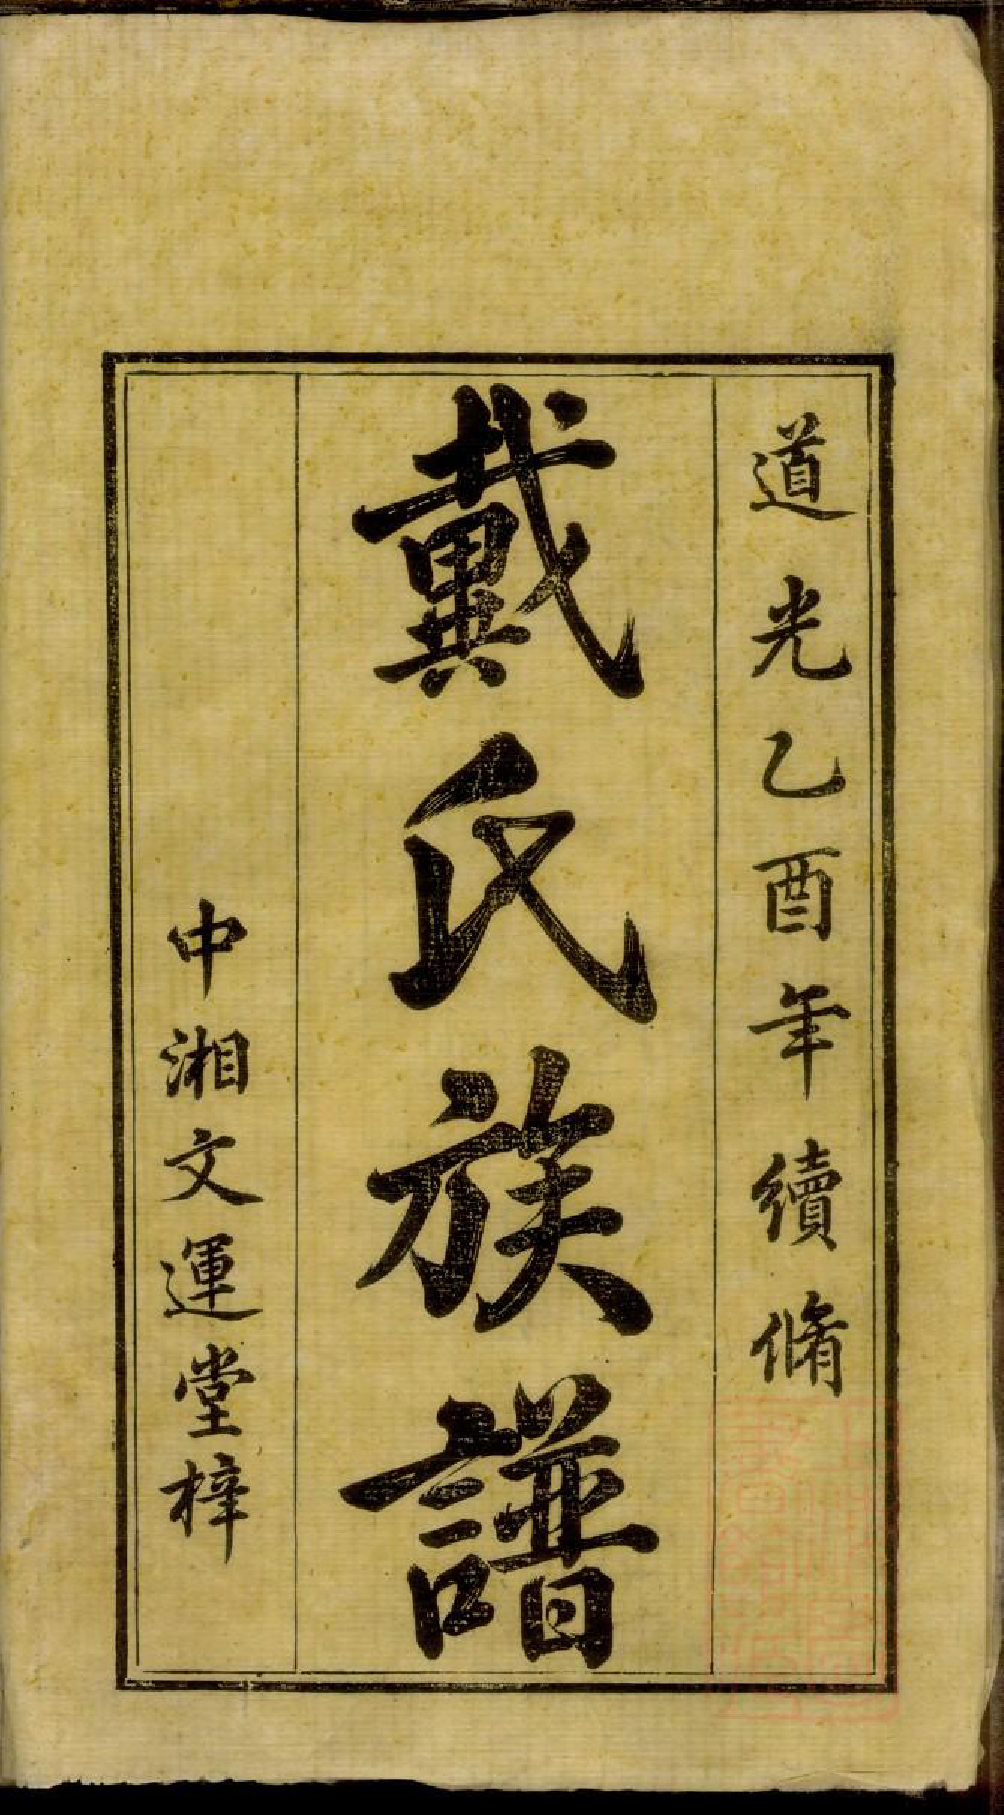 道光乙酉年續脩
戴氏族譜
中湘文運堂梓